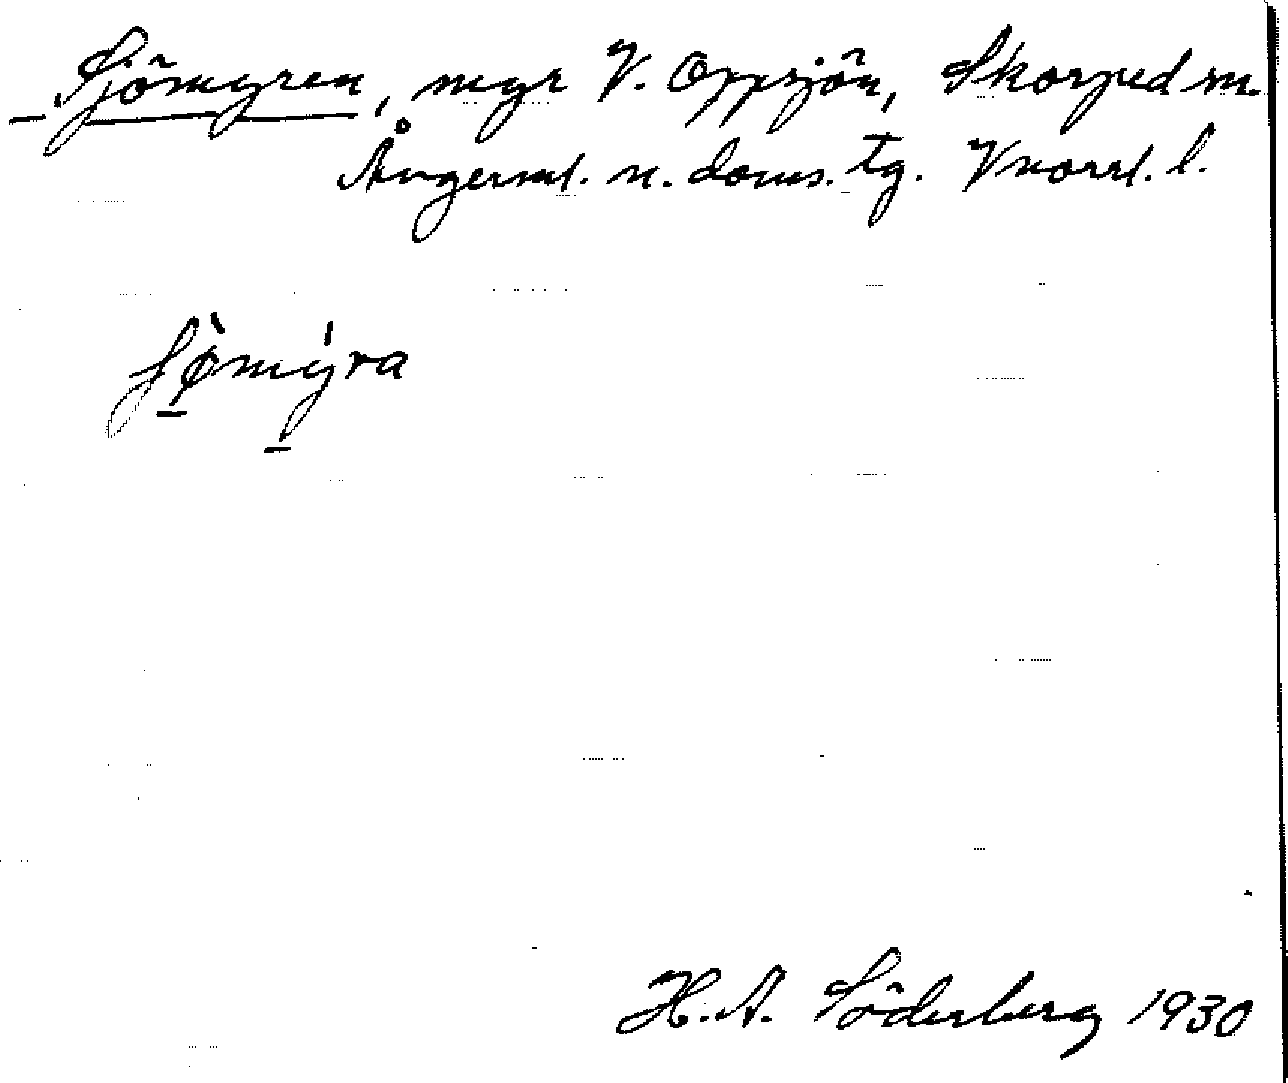 Sjömyren, myr V. Oppsjön, Skorped sn.
Ångerml. n. doms. tg. Vnorrl. l.
Sø̀mýra
H.A. Söderberg 1930